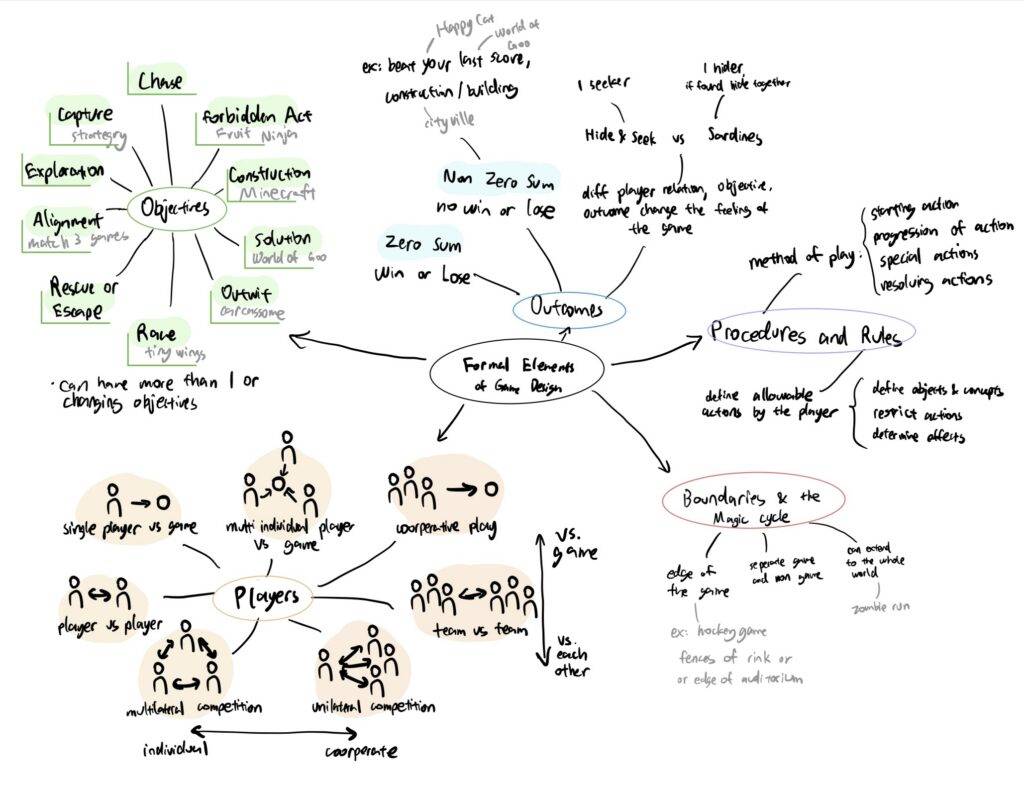 Formal Elements
of Game Design
Objectives
Chase
Capture
strategry
Forbidden Act
Fruit Ninja
Exploration
Construction
Minecraft
Alignment
match 3 games
Solution
World of Goo
Rescue or
Escape
Outwit
carcassome
Race
tiny wings
· can have more than 1 or
changing objectives
Outcomes
Happy Cat
World of
Goo
ex: beat your last score,
construction / building
cityville
Non Zero Sum
no win or lose
Zero Sum
Win or Lose
1 seeker
1 hider,
if found hide together
Hide & Seek vs Sardines
diff player relation, objective,
outcome change the feeling of
the game
Procedures and Rules
method of play:
starting action
progression of action
special actions
resolving actions
define allowable
actions by the player
define objects & concepts
restrict actions
determine effects
Boundaries & the
Magic cycle
edge of
the game
ex: hockey game
fences of rink or
or edge of auditorium
seperate game
and non game
can extend
to the whole
world
zombie run
Players
single player vs game
multi individual player
vs game
cooperative play
player vs player
team vs team
multilateral competition
unilateral competition
vs.
game
vs.
each
other
individual
coorperate